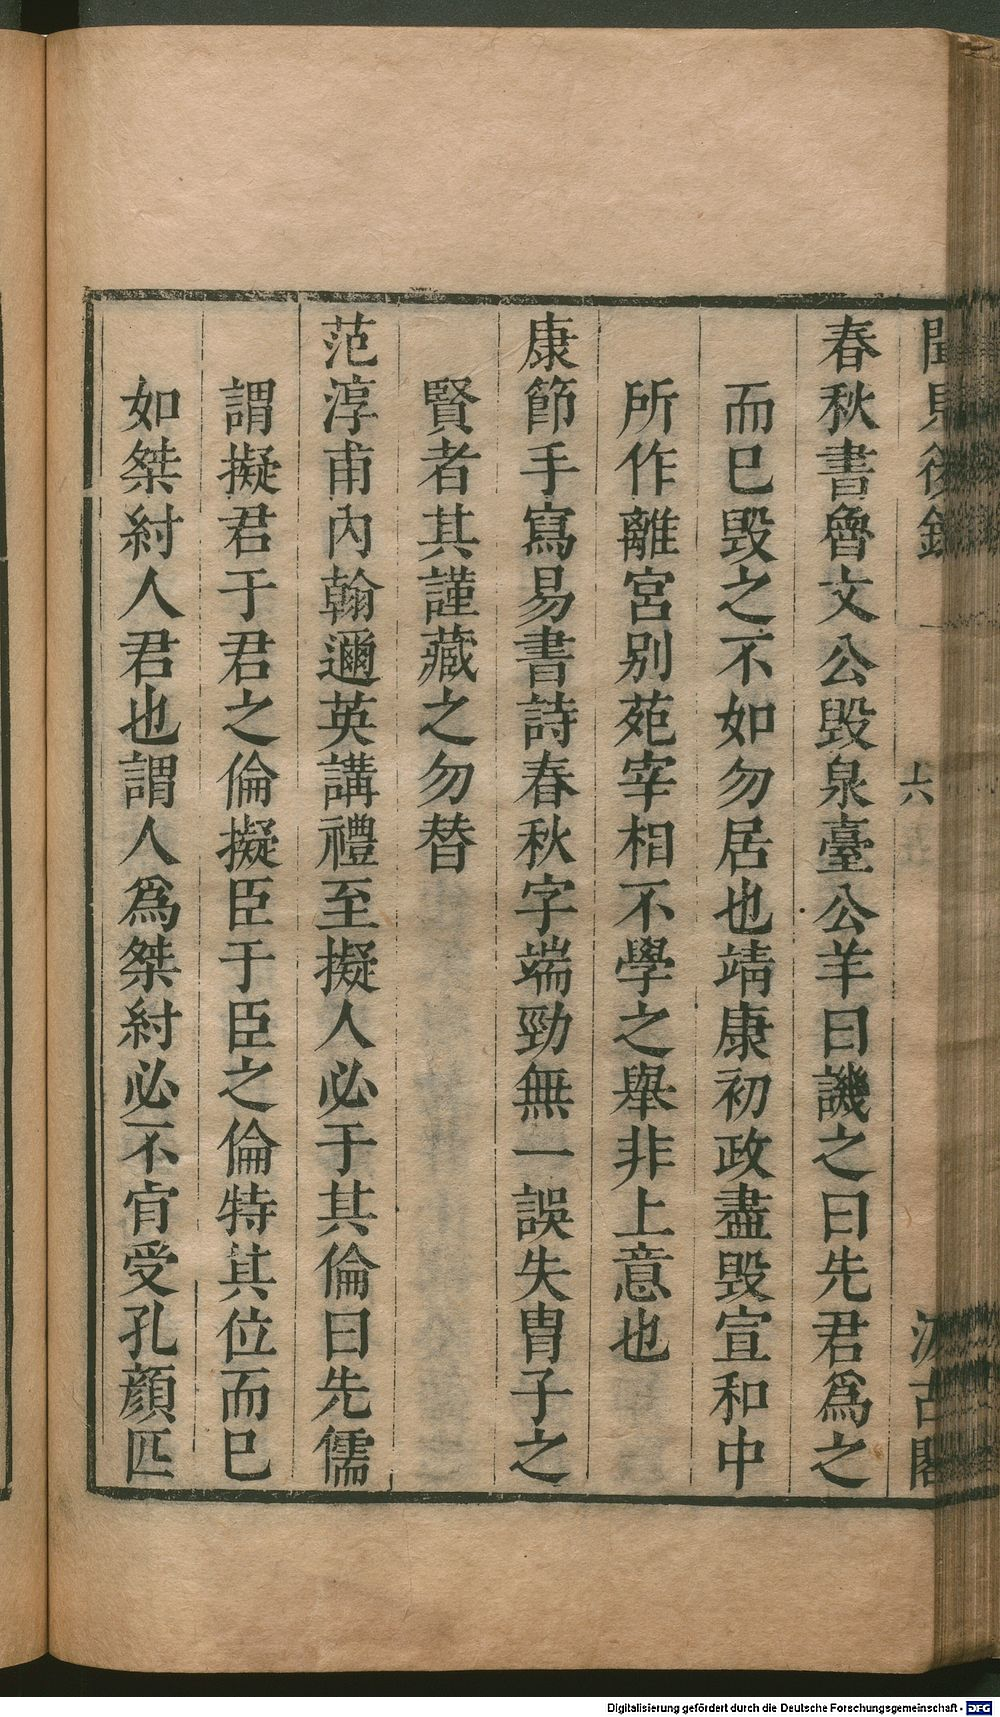 聞見後錄
六
汲古閣
春秋書魯文公毀泉臺公羊曰譏之曰先君爲之
而巳毀之不如勿居也靖康初政盡毀宣和中
所作離宮别苑宰相不學之舉非上意也
康節手寫易書詩春秋字端勁無一誤失冑子之
賢者其謹藏之勿替
范淳甫內翰邇英講禮至擬人必于其倫曰先儒
謂擬君于君之倫擬臣于臣之倫特其位而巳
如桀紂人君也謂人爲桀紂必不肯受孔顏匹
Digitalisierung gefördert durch die Deutsche Forschungsgemeinschaft - DFG